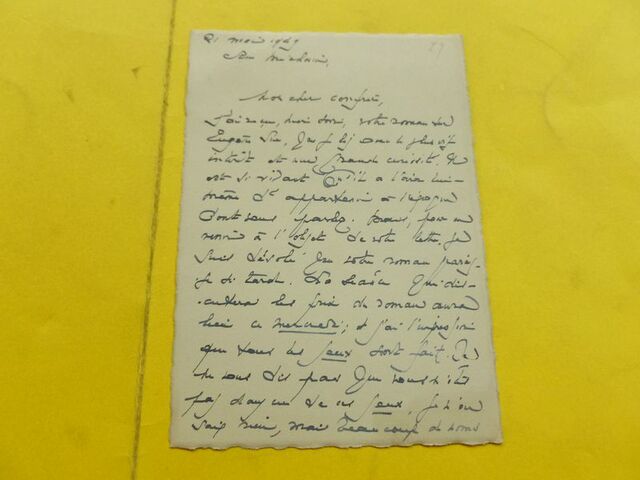 21 mai 1949
Mon cher confrère,
J'ai reçu, hier soir, votre roman sur
Eugène Sue, que je lis avec le plus vif
intérêt et une grande curiosité. Il
est si vivant qu'il a l'air lui-
même d'appartenir à l'époque
dont vous parlez. Mais, pour en
venir à l'objet de votre lettre, je
suis désolé que votre roman paraisse
si tard. La séance qui dis-
cutera les prix de roman aura
lieu ce mercredi ; et j'ai l'impression
que tous les jeux sont faits. Je
ne vous dis pas que vous n'êtes
pas dans un de ces jeux, je n'en
sais rien, mais beaucoup de